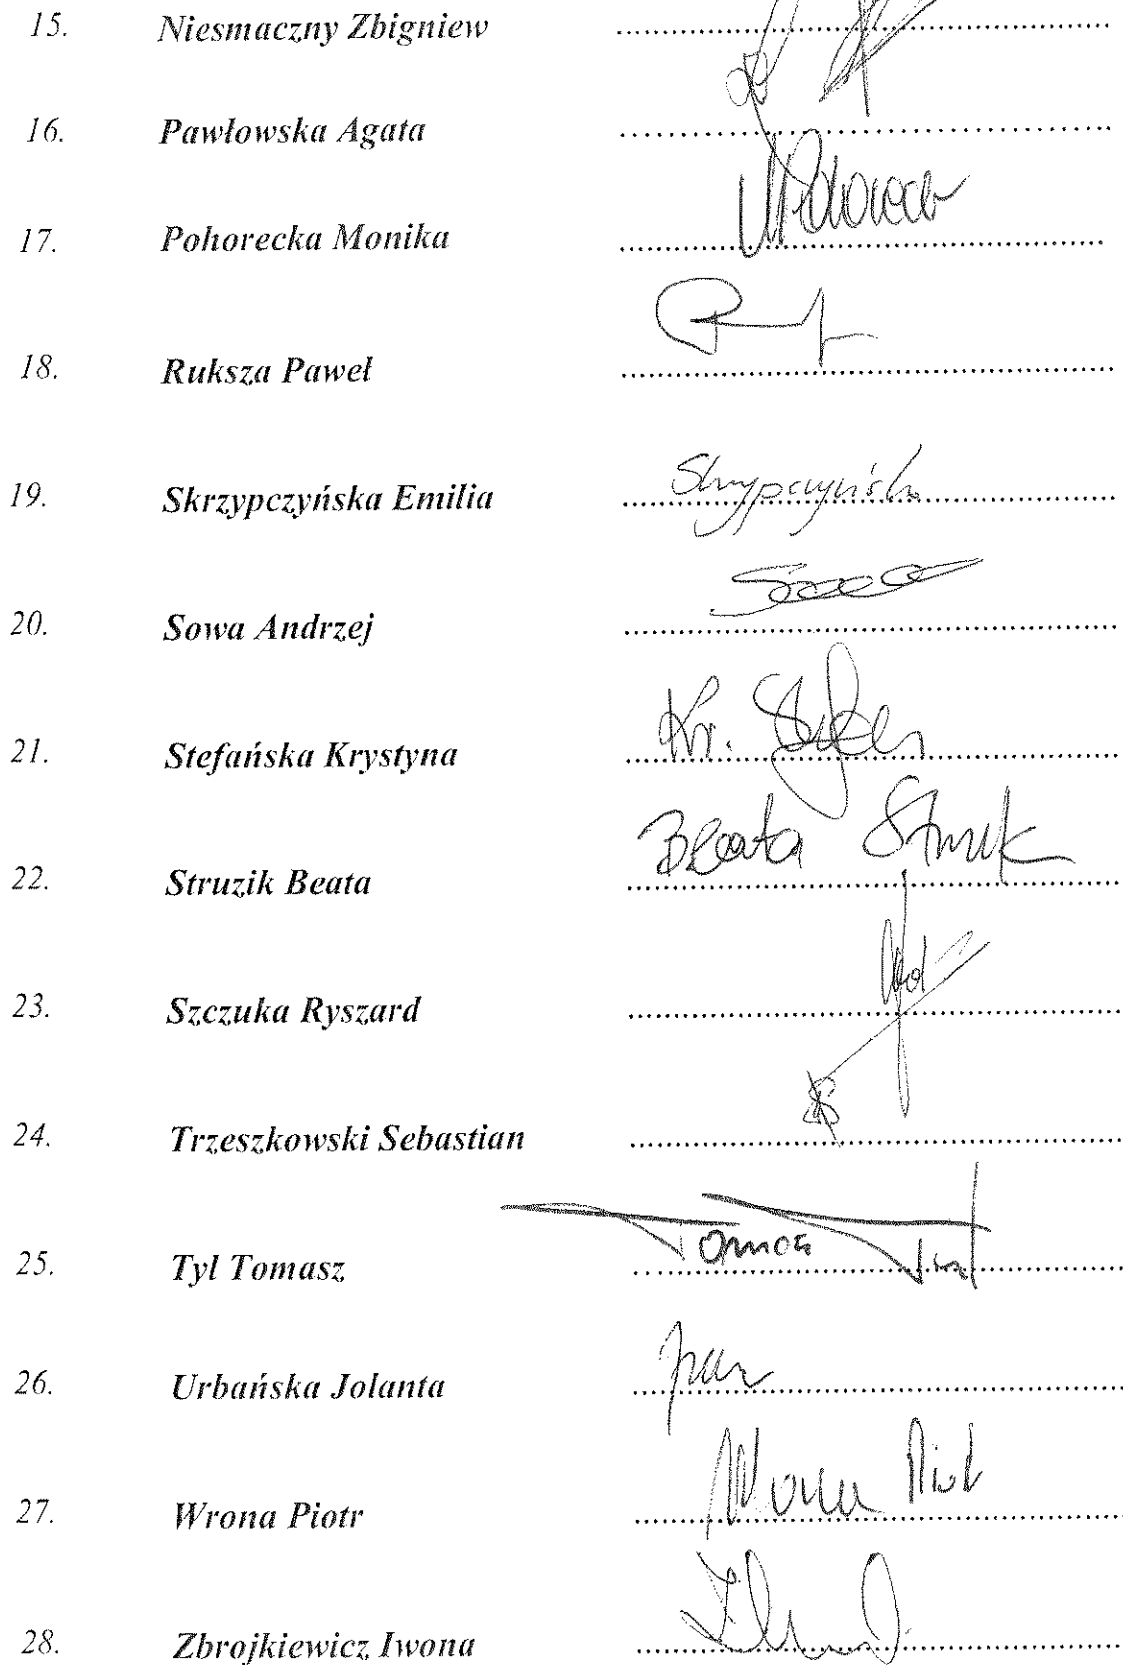 15. Niesmaczny Zbigniew
16. Pawłowska Agata
17. Pohorecka Monika
18. Ruksza Paweł
19. Skrzypczyńska Emilia Skrzypczyńska
20. Sowa Andrzej
21. Stefańska Krystyna Kr.
22. Struzik Beata Beata Struzik
23. Szczuka Ryszard
24. Trzeszkowski Sebastian
25. Tyl Tomasz Tomasz Tyl
26. Urbańska Jolanta
27. Wrona Piotr Wrona Piotr
28. Zbrojkiewicz Iwona